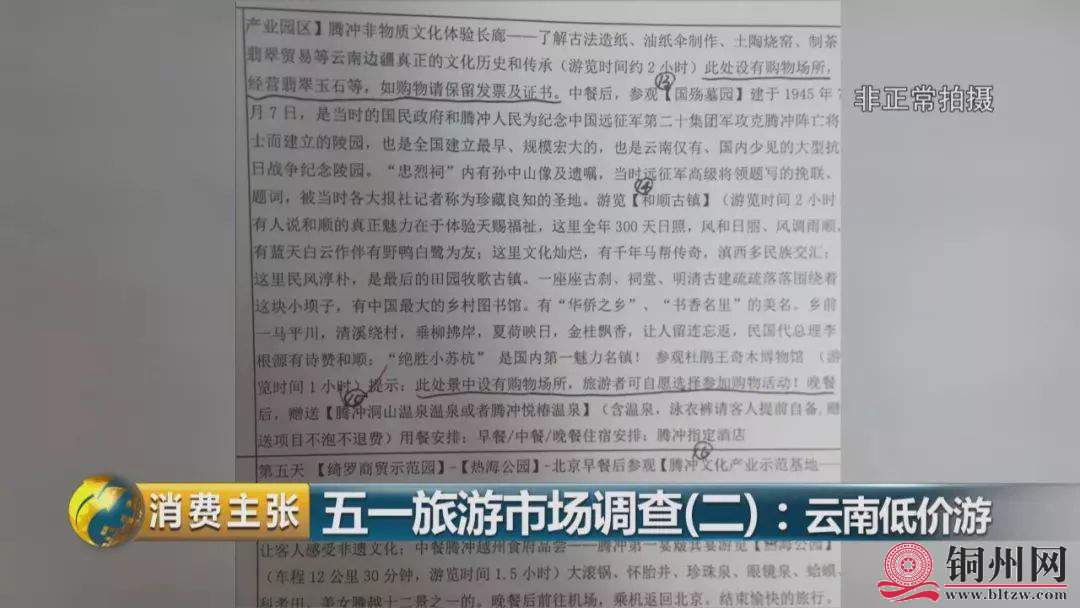 产业园区】腾冲非物质文化体验长廊——了解古法造纸、油纸伞制作、土陶烧窑、制茶
翡翠贸易等云南边疆真正的文化历史和传承（游览时间约2小时）此处设有购物场所，
经营翡翠玉石等，如购物请保留发票及证书。中餐后，参观【国殇墓园】建于1945年7
月7日，是当时的国民政府和腾冲人民为纪念中国远征军第二十集团军攻克腾冲阵亡将
士而建立的陵园，也是全国建立最早、规模宏大的，也是云南仅有、国内少见的大型抗
日战争纪念陵园。“忠烈祠”内有孙中山像及遗嘱，当时远征军高级将领题写的挽联、
题词，被当时各大报社记者称为珍藏良知的圣地。游览【和顺古镇】（游览时间2小时
有人说和顺的真正魅力在于体验天赐福祉，这里全年300天日照，风和日丽、风调雨顺，
有蓝天白云作伴有野鸭白鹭为友；这里文化灿烂，有千年马帮传奇，滇西多民族交汇；
这里民风淳朴，是最后的田园牧歌古镇。一座座古刹、祠堂、明清古建疏疏落落围绕着
这块小坝子，有中国最大的乡村图书馆。有“华侨之乡”、“书香名里”的美名。乡前
一马平川，清溪绕村，垂柳拂岸，夏荷映日，金桂飘香，让人留连忘返，民国代总理李
根源有诗赞和顺：“绝胜小苏杭”是国内第一魅力名镇！参观杜鹃王奇木博物馆（游
览时间1小时）提示：此处景中设有购物场所，旅游者可自愿选择参加购物活动！晚餐
后，赠送【腾冲洞山温泉温泉或者腾冲悦椿温泉】（含温泉，泳衣裤请客人提前自备，赠
送项目不泡不退费）用餐安排：早餐/中餐/晚餐住宿安排：腾冲指定酒店
第五天【绮罗商贸示范园】-【热海公园】-北京早餐后参观【腾冲文化产业示范基地——
让客人感受非遗文化；中餐腾冲越州食府品尝——腾冲第一宴
游览【热海公园】
（车程12公里30分钟，游览时间1.5小时）大滚锅、怀胎井、珍珠泉、眼镜泉、蛤蟆
美女
十二景之一的。晚餐后前往机场，乘机返回北京。结束愉快的旅行。
非正常拍摄
消费主张
五一旅游市场调查(二)：云南低价游
铜州网
www.bltzw.com